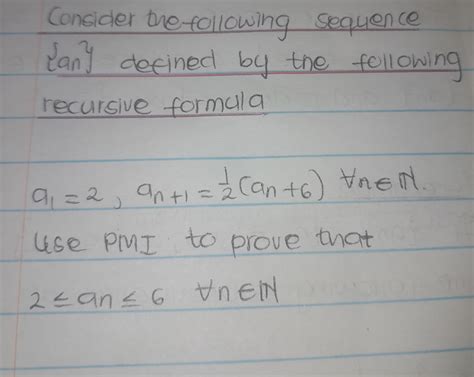 Consider the following sequence
{an} defined by the following
recursive formula
a₁ = 2, aₙ₊₁ = ½(an + 6) ∀n∈ℕ.
Use PMI to prove that
2 ≤ an ≤ 6 ∀n∈ℕ